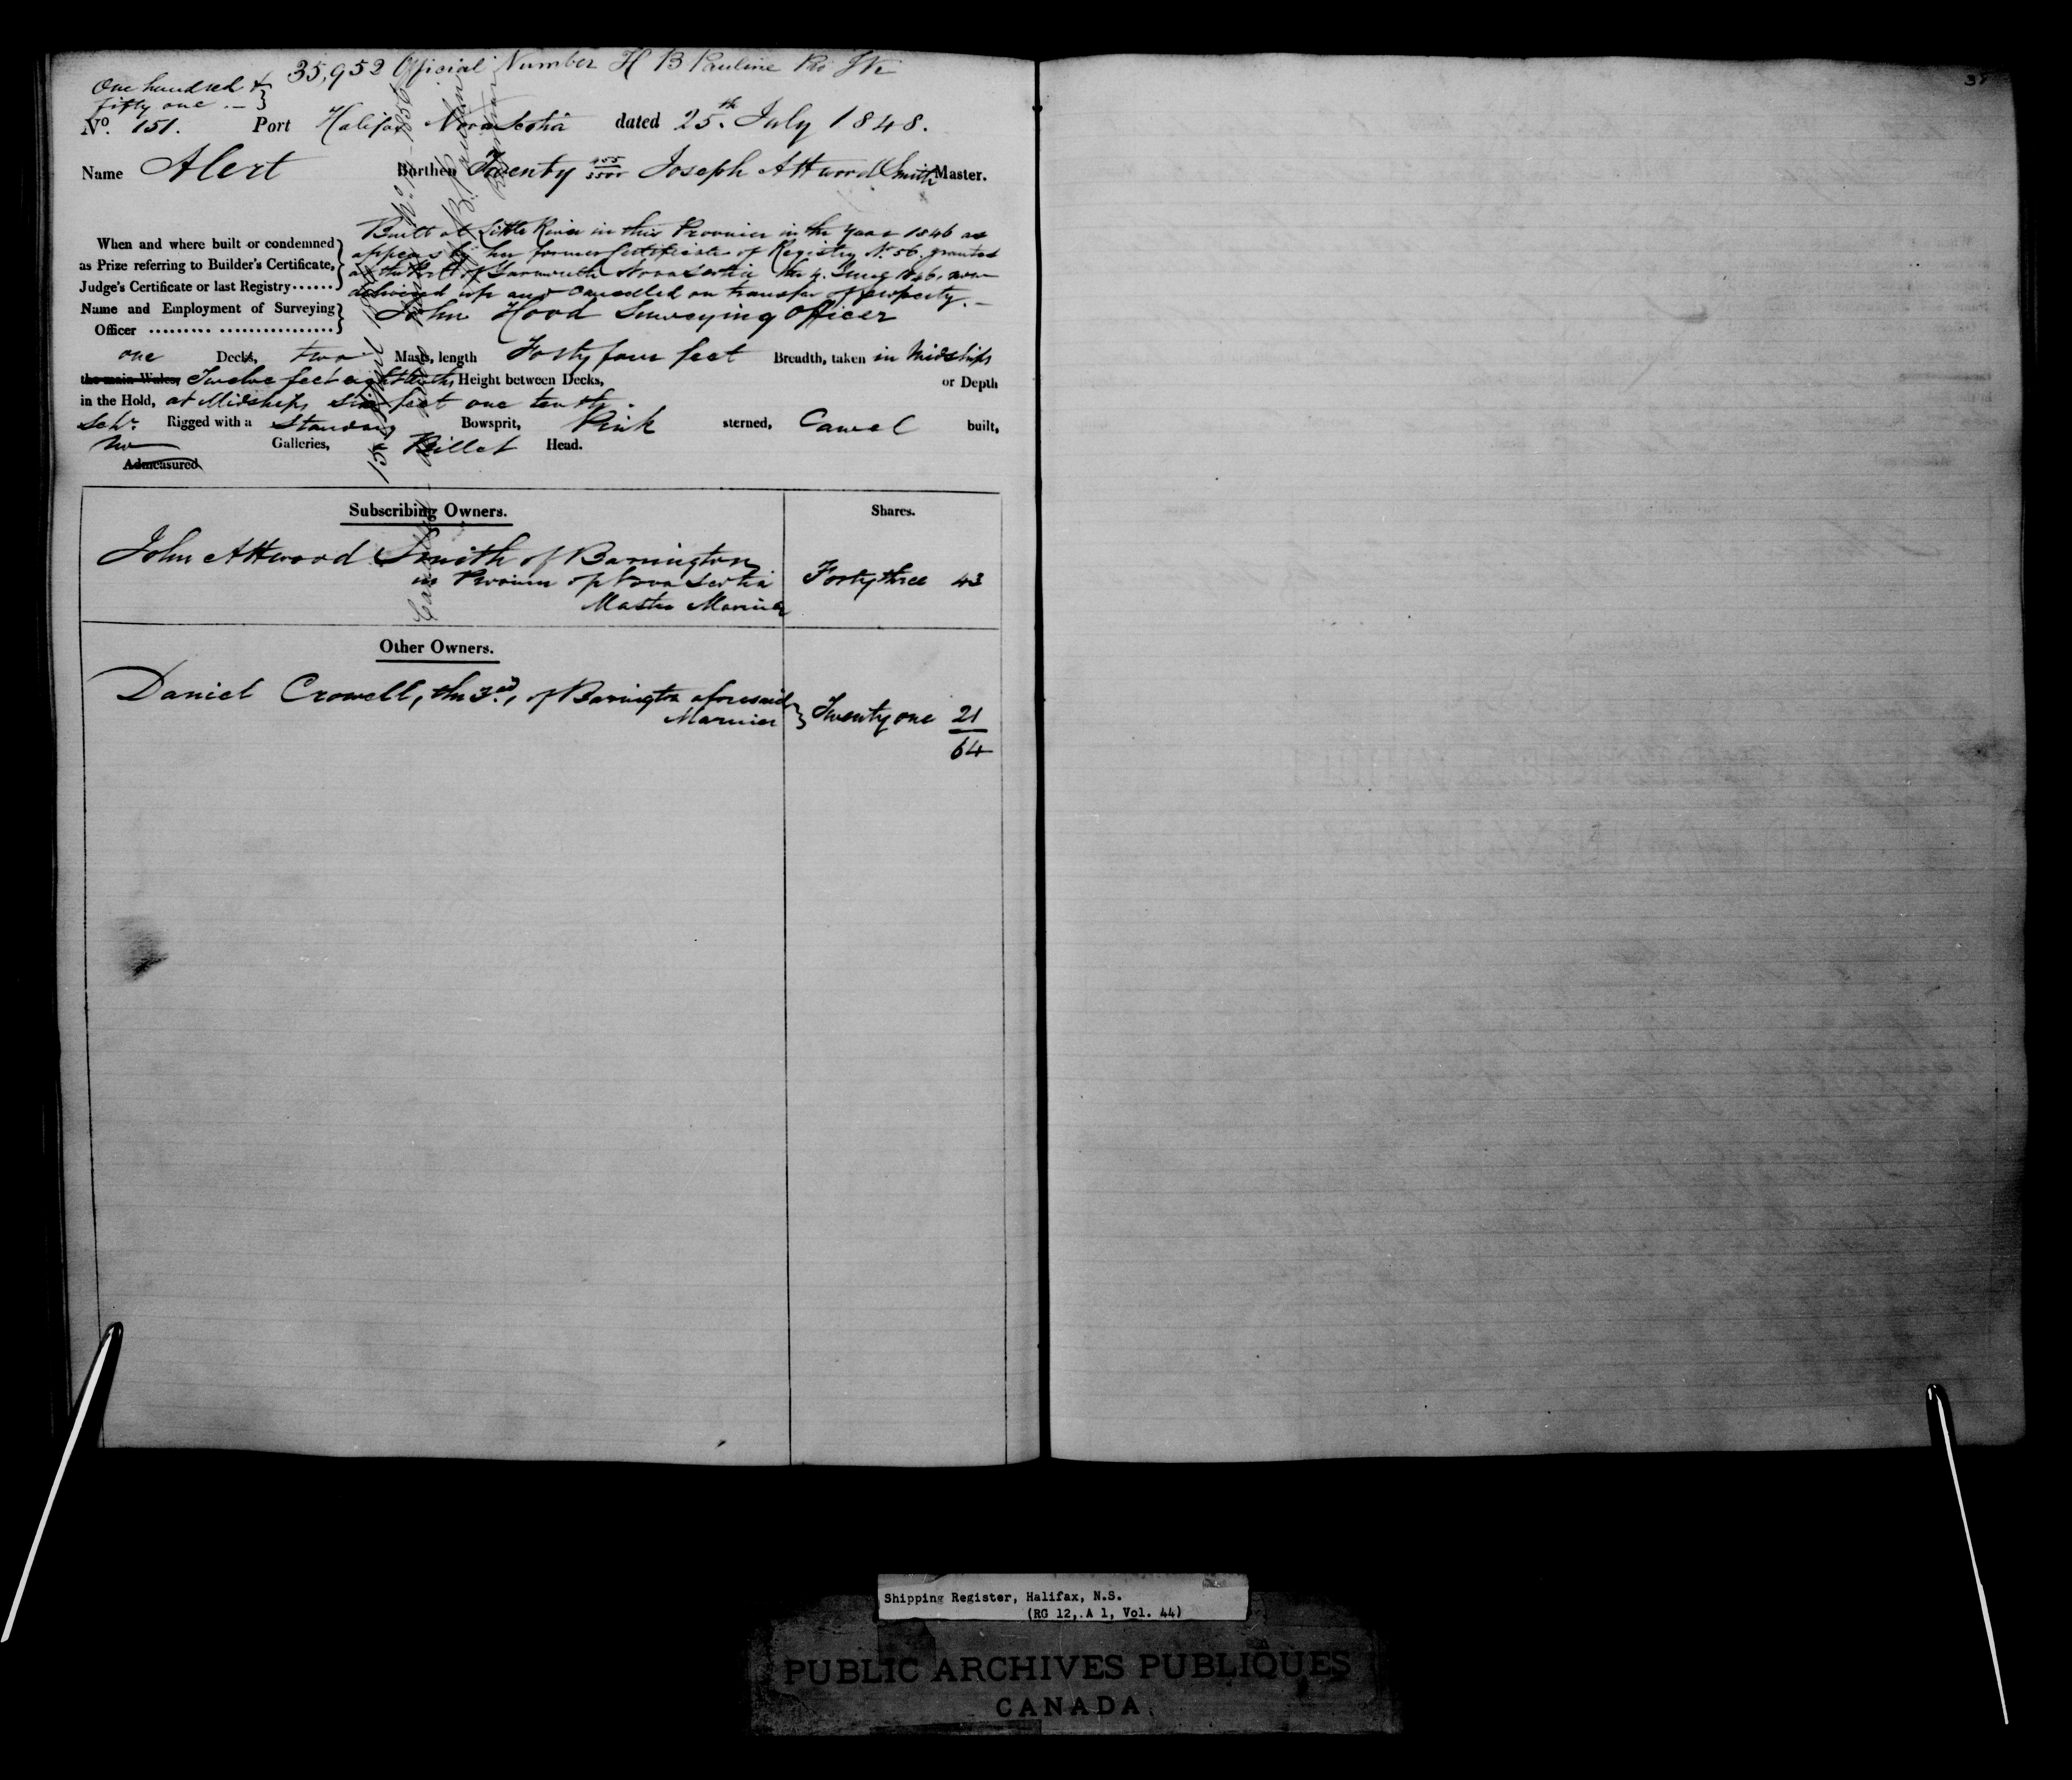 35,952 Official Number H B Pauline
One hundred &
fifty one.—
No. 151. Port Halifax Nova Scotia dated 25th July 1848.
Name Alert Burthen Twenty 455/3500 Joseph Attwood Smith Master.
When and where built or condemned
as Prize referring to Builder's Certificate,
Judge's Certificate or last Registry......
Built at Little River in this Province in the Year 1846 as
appears by her former Certificate of Registry No. 56. granted
at the Port of Yarmouth Nova Scotia the 4. June 1846, now
delivered up and Cancelled on transfer of property.—
Name and Employment of Surveying
Officer ......... ................
John Hood Surveying Officer
one Decks, two Masts, length Forty four feet Breadth, taken in Midships
the main Wales, Twelve feet eight tenths Height between Decks, or Depth
in the Hold, at Midships six feet one tenth.
Schr. Rigged with a Standing Bowsprit, Pink sterned, Carvel built,
no Galleries, Billet Head.
Admeasured
Subscribing Owners. Shares.
John Attwood Smith of Barrington
in Province of Nova Scotia Forty three 43
Master Mariner
Other Owners.
Daniel Crowell, the 3rd, of Barrington aforesaid
Mariner Twenty one 21
64
Shipping Register, Halifax, N.S.
(RG 12, A 1, Vol. 44)
PUBLIC ARCHIVES PUBLIQUES
CANADA